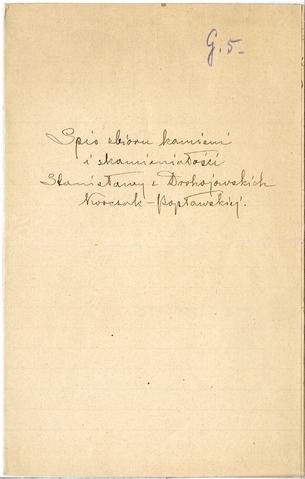 G. 5.
Spis zbioru kamieni
i skamieniałości
Stanisławy z Drohojowskich
Korczak-Popławskiej.